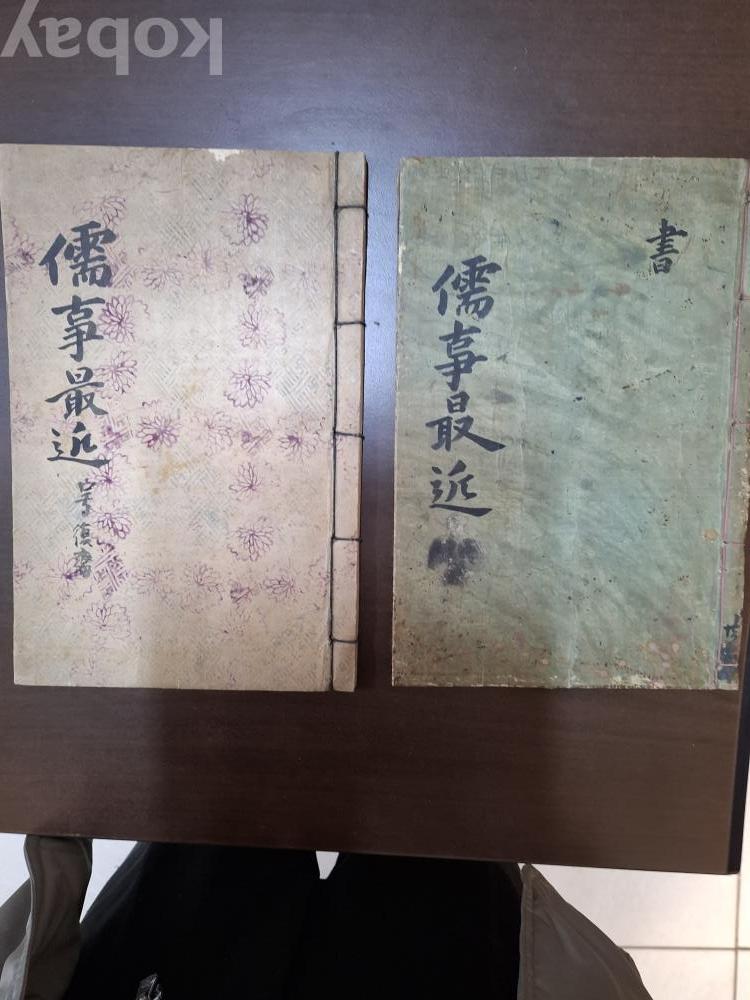 kobay
儒事最近
書
儒事最近